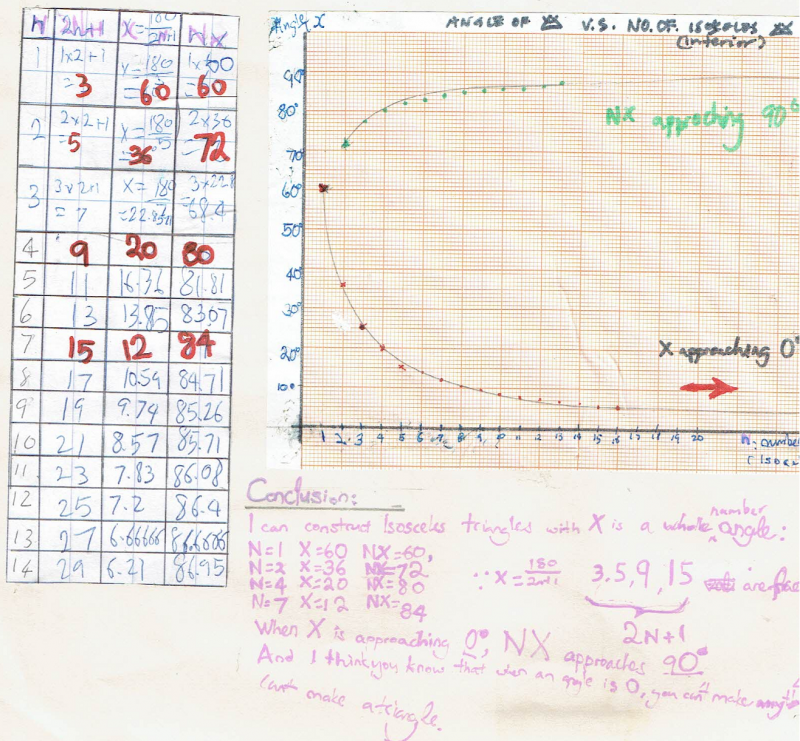 N 2N+1 X=180/2N+1 NX
1 1x2+1 =3 x=180/3 =60 1x60 =60
2 2x2+1 =5 x=180/5 =36 2x36 =72
3 3x2+1 =7 X=180/7 3x22.8 =68.4
4 9 20 80
5 11 16.36 81.81
6 13 13.85 83.07
7 15 12 84
8 17 10.59 84.71
9 19 9.74 85.26
10 21 8.57 85.71
11 23 7.83 86.08
12 25 7.2 86.4
13 27 6.66666 86.6666
14 29 6.21 86.95
Angle X
ANGLE OF V.S. NO. OF ISOSOLES
(interior)
90°
80°
70°
60°
50°
40°
30°
20°
10°
NX approching 90°
X approaching 0°
1 2 3 4 5 6 7 8 9 10 11 12 13 14 15 16 17 18 19 20
n. number
(Isoc
Conclusion:
I can construct Isosceles triangles with X is a whole number angle:
N=1 X=60 NX=60,
N=2 X=36 NX=72
N=4 X=20 NX=80
N=7 X=12 NX=84
∵X=180/2n+1 3.5,9,15 are
2N+1
When X is approaching 0°, NX approaches 90°
And I think you know that when an angle is 0, you can't make
cant make a triangle.